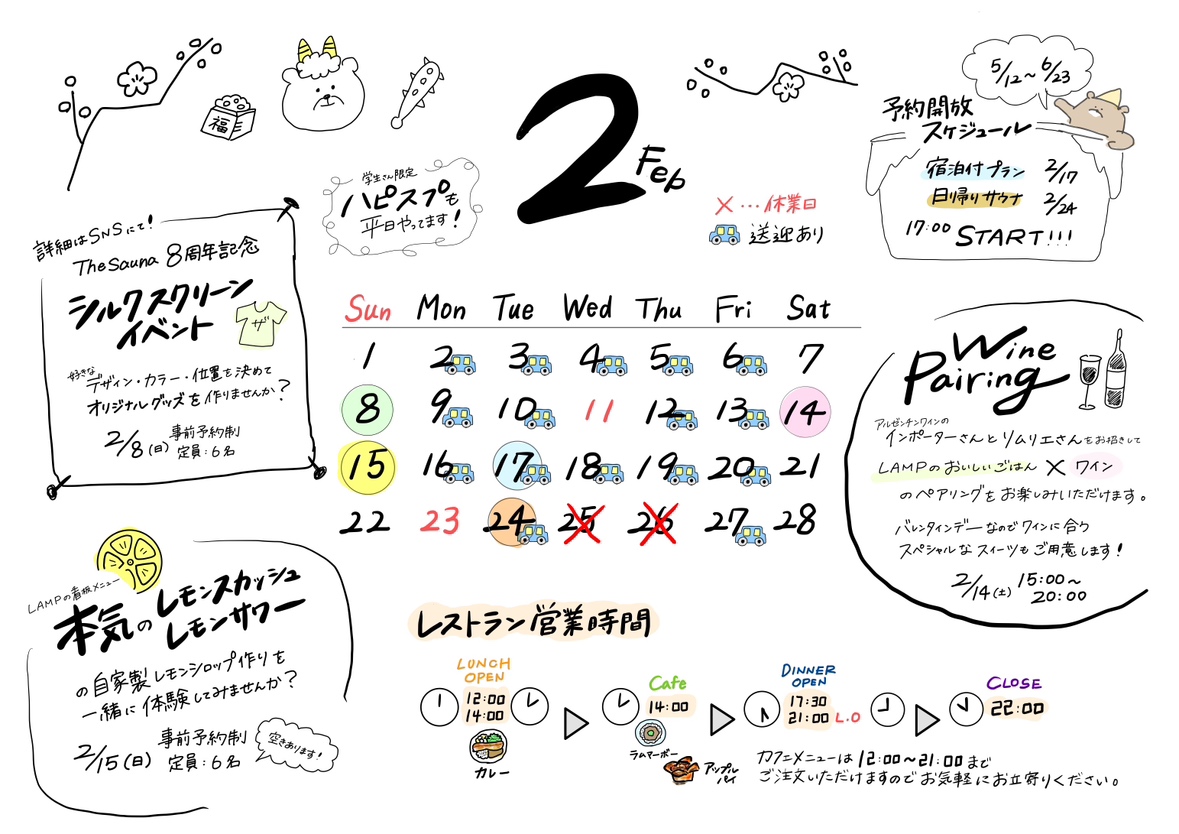 福
2
Feb
学生さん限定
ハピスプも
平日やってます!
×…休業日
送迎あり
5/12〜6/23
予約開放
スケジュール
宿泊付プラン 2/17
日帰りサウナ 2/24
17:00 START!!!
詳細はSNSにて!
TheSauna 8周年記念
シルクスクリーン
イベント
ザ
好きな
デザイン・カラー・位置を決めて
オリジナルグッズを作りませんか?
2/8(日) 事前予約制
定員:6名
Sun Mon Tue Wed Thu Fri Sat
1 2 3 4 5 6 7
8 9 10 11 12 13 14
15 16 17 18 19 20 21
22 23 24 25 26 27 28
Wine
Pairing
アルゼンチンワインの
インポーターさんとソムリエさんをお招きして
LAMPのおいしいごはん × ワイン
のペアリングをお楽しみいただけます。
バレンタインデーなのでワインに合う
スペシャルなスイーツもご用意します!
2/14(土) 15:00〜
20:00
LAMPの看板メニュー
本気のレモンスカッシュ
レモンサワー
の自家製レモンシロップ作りを
一緒に体験してみませんか?
2/15(日) 事前予約制
定員:6名
空きあります!
レストラン営業時間
LUNCH
OPEN
12:00
14:00
カレー
Cafe
14:00
ラムマーボー
アップル
パイ
DINNER
OPEN
17:30
21:00 L.O
CLOSE
22:00
カフェメニューは12:00〜21:00まで
ご注文いただけますのでお気軽にお立寄りください。